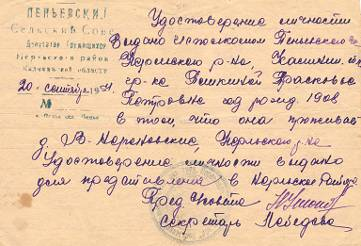 ПЕНЬЕВСКИ
Сельский Сове
Депутатов Трудящихся
Нерльского района
Калининской области
20 сентября 1951 г.
№
Удостоверение личности
Выдано исполкомом Пеньевского с/с
Нерльского р-на, Калинин. обл.
гр-ка Прасковья
Петровна год рожд. 1908
в том, что она проживает
д. Нерльского р-на
Удостоверение личности выдано
для представления в Нерльское
Пред. с/совета
Секретарь Лебедева